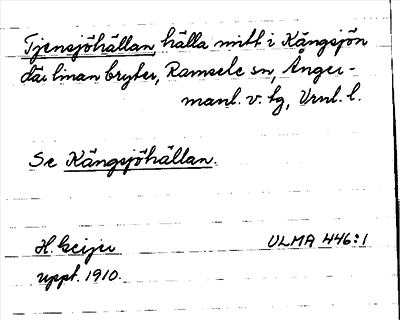 Tjensjöhällan, hälla mitt i Kängsjön
där linan bryter, Ramsele sn, Ånger-
manl. v. tg, Vrnl. l.
Se Kängsjöhällan.
H. Geijer ULMA 446:1
uppt. 1910.